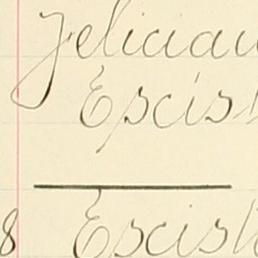 Felician
Escis
8 Escis